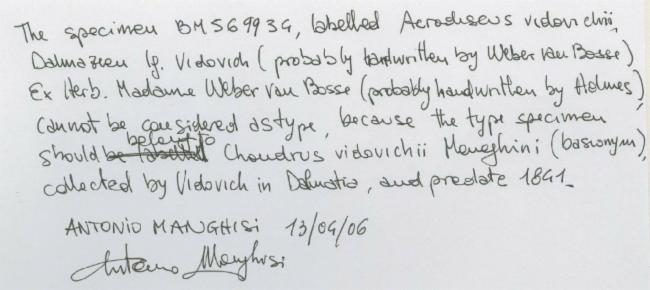 The specimen BM569934, labelled Acrodiscus vidovichii,
Dalmazien lg. Vidovich (probably handwritten by Weber van Bosse)
Ex Herb. Madame Weber van Bosse (probably handwritten by Holmes)
cannot be considered as type, because the type specimen
should be labelled belong to Chondrus vidovichii Meneghini (basionym),
collected by Vidovich in Dalmatia, and predate 1841.
ANTONIO MANGHISI 13/04/06
Antonio Manghisi